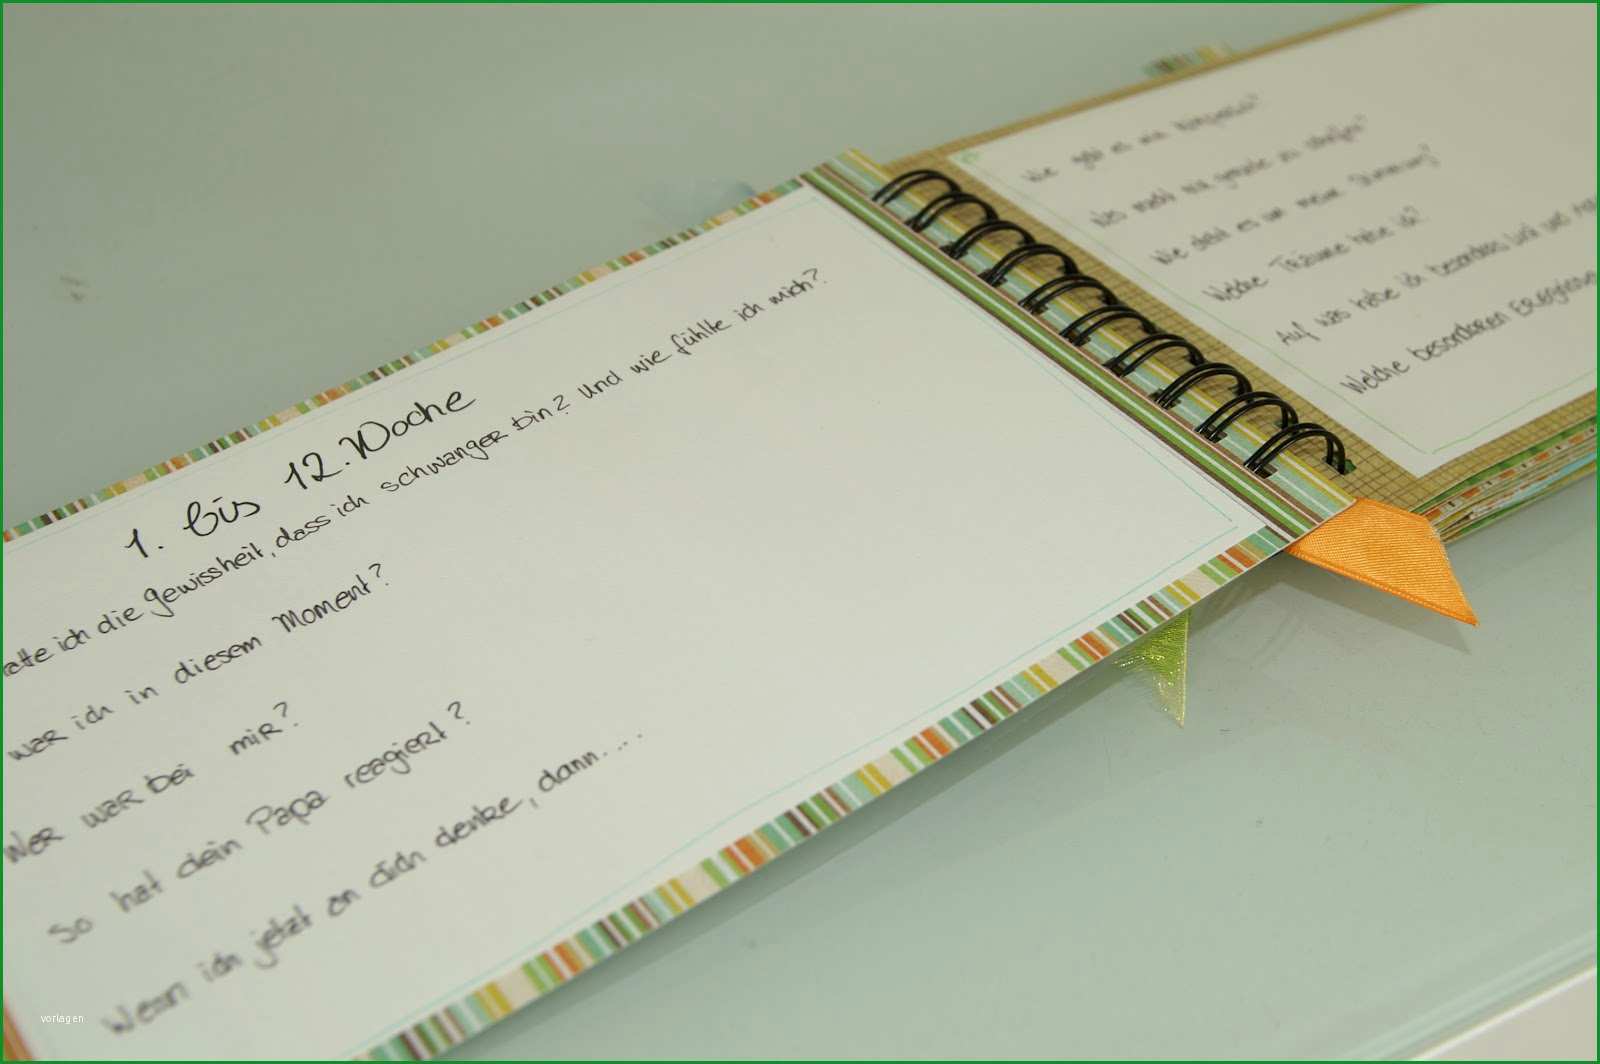 1. bis 12. Woche
atte ich die gewissheit, dass ich schwanger bin? Und wie fühlte ich mich?
war ich in diesem Moment?
Wer war bei mir?
So hat dein Papa reagiert?
Wenn ich jetzt an dich denke, dann....
Wie geht es mir körperlich?
Was macht mir gerade zu schaffen?
Wie steht es um meine Stimmung?
Welche Träume habe ich?
Auf was habe ich besonders Lust und
Welche besonderen Ereignisse
vorlagen